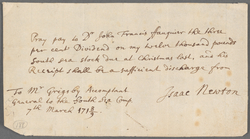 Pray pay to Dr. John Francis Fauquier the three
per cent Dividend on my twelve thousand pounds
South sea stock due at Christmas last, and his
Receipt shall be a sufficient discharge from
Isaac Newton
To Mr Grigsby Accomptant
General to the South Sea Comp
7th March 171